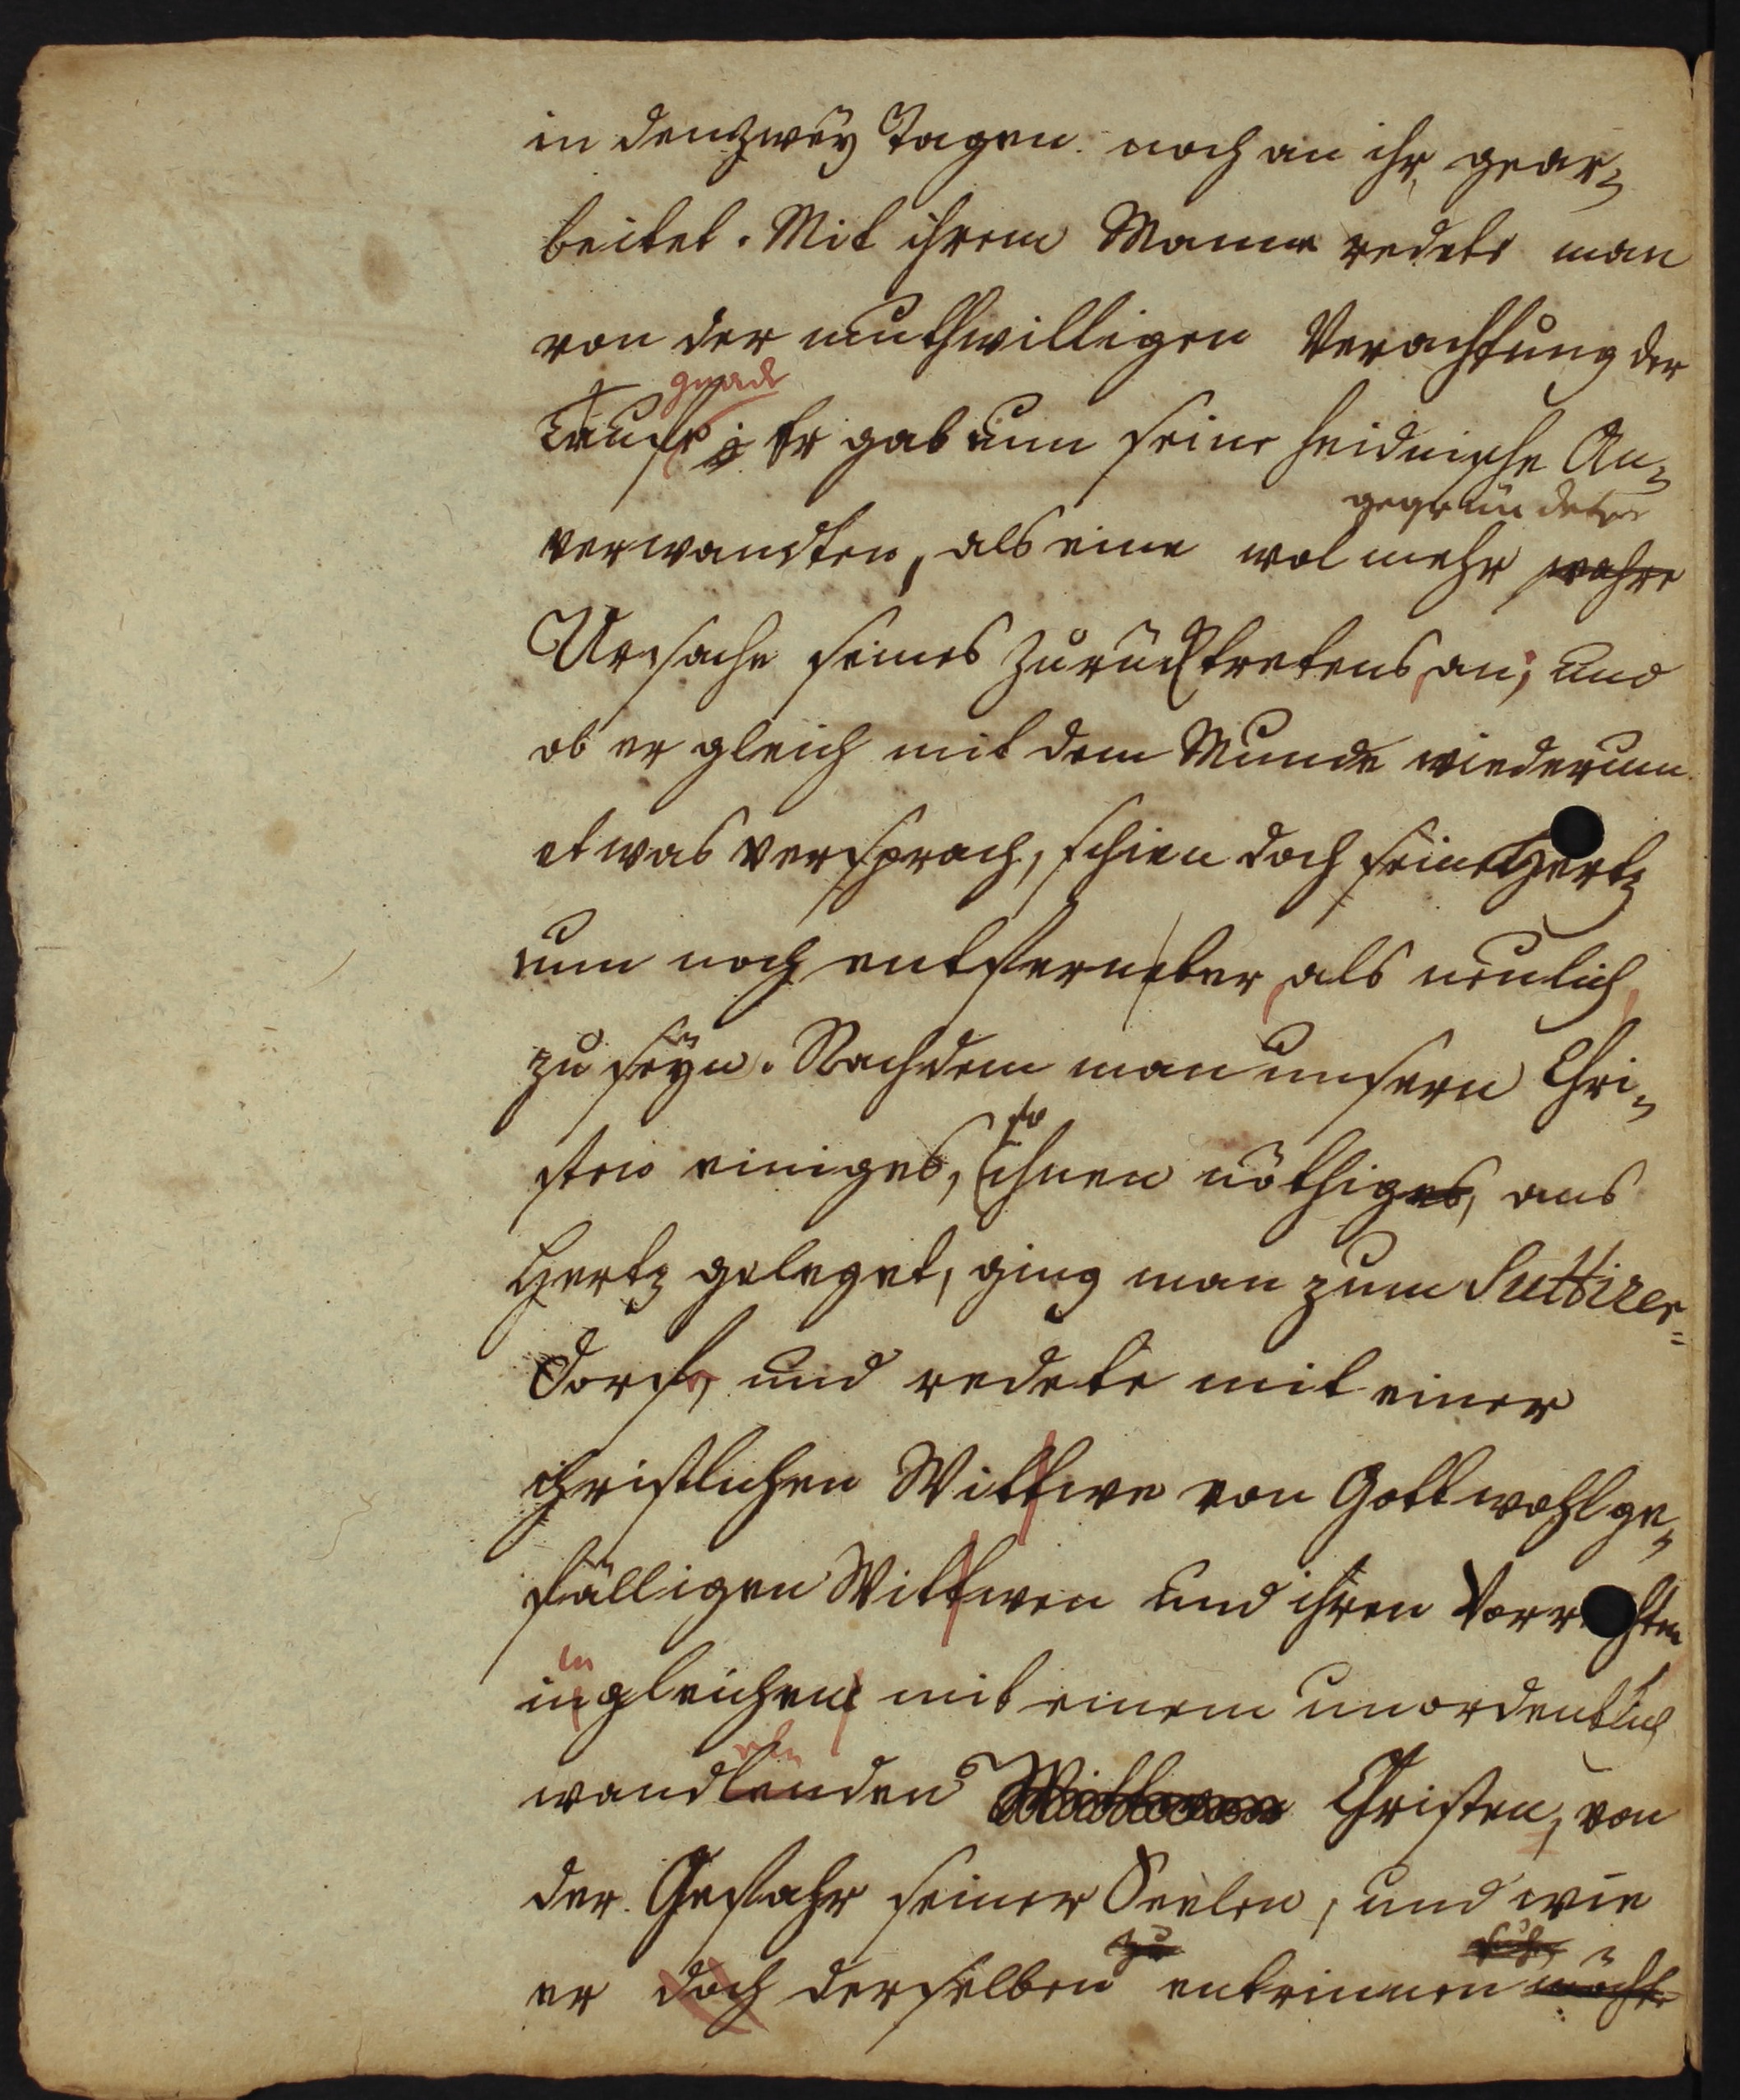 in den zwey Tagen noch an ihr gear-
beitet. Mit ihrem Manne redete man
von der muthwilligen Verachtung der
gnade
Tauffe; Er gab nun seine heidnische An-
gegründete
verwandten, als eine wol mehr wahre
Ursache seines Zurücktretens, an; und
ob er gleich mit dem Munde wiederum
etwas versprach, schien doch sein Hertz
nun noch entfernter, als neulich,
zu seyn. Nachdem man unsern Chri-
so
sten einiges, ihnen nöthiges, ans
Hertz geleget, ging man zum Suttirer-
Dorff, und redete mit einer
christlichen Wittwe von Gott wohlge-
fälligen Wittwen und ihren Vorrechten
in
ingleichen mit einem unordentlich
eln
wandlenden Wittwen Christen, von
der Gefahr seiner Seelen, und wie
zu
er doch derselben entrinnen möchte